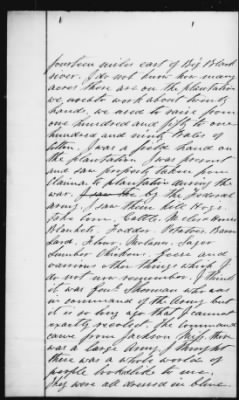 fourteen miles east of Big Black
river. I do not know how many
acres there are on the plantation
we worked about twenty
hands, we used to raise from
one hundred and fifty to one
hundred and ninty Bales of
Cotton. I was a field hand on
the plantation. I was present
and saw property taken from
Claimant plantation during the
war. by the Federal
army. I saw them kill Hogs
take Corn, Cattle, Mules Horses
Blankets, Fodder, Potatoes, Bacon
Lard, Flour, Molasses, Sugar
Lumber Chickens, Geese and
various other things which I
do not now remember. I think
it was Genl Sherman who was
in command of the Army but
it is so long ago that I cannot
exactly recollect. The Command
came from Jackson Miss. this
was a large Army. I thought
there was a whole world of
people looked like to me.
They were all dressed in blue